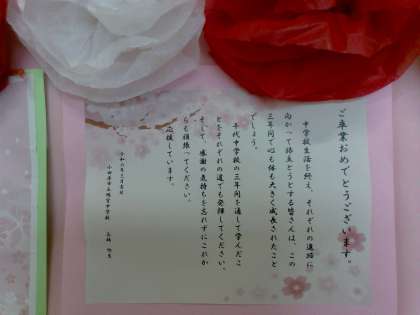 ご卒業おめでとうございます。
中学校生活を終え、それぞれの進路に
向かって旅立とうとする皆さんは、この
三年間で心も体も大きく成長されたこと
でしょう。
千代中学校の三年間を通して学んだこ
とをそれぞれの道でも発揮してください。
そして、感謝の気持ちを忘れずにこれか
らも頑張ってください。
応援しています。
令和六年三月吉日
小田原市立